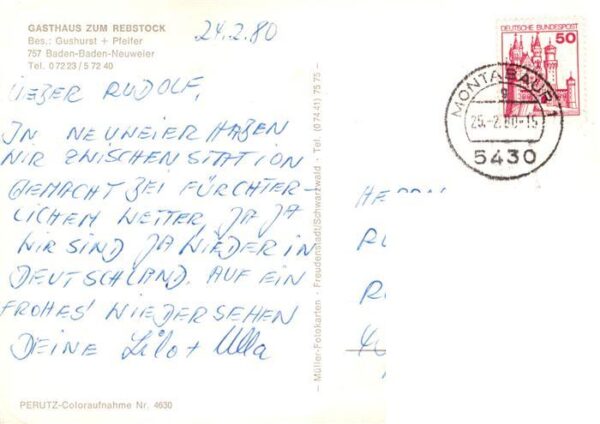 GASTHAUS ZUM REBSTOCK
Bes.: Gushurst + Pfeifer
757 Baden-Baden-Neuweier
Tel. 0 72 23 / 5 72 40
24.2.80
LIEBER RUDOLF,
IN NEUWEIER HABEN
WIR ZWISCHENSTATION
GEMACHT BEI FÜRCHTER-
LICHEM WETTER, JA JA
WIR SIND JA WIEDER IN
DEUTSCHLAND. AUF EIN
FROHES WIEDERSEHEN
DEINE Lilo + Ulla
PERUTZ-Coloraufnahme Nr. 4630
– Müller-Fotokarten - Freudenstadt/Schwarzwald - Tel. (0 74 41) 75 75 –
DEUTSCHE BUNDESPOST
50
MONTABAUR 1
g
25.-2.80-15
5430
HERRN